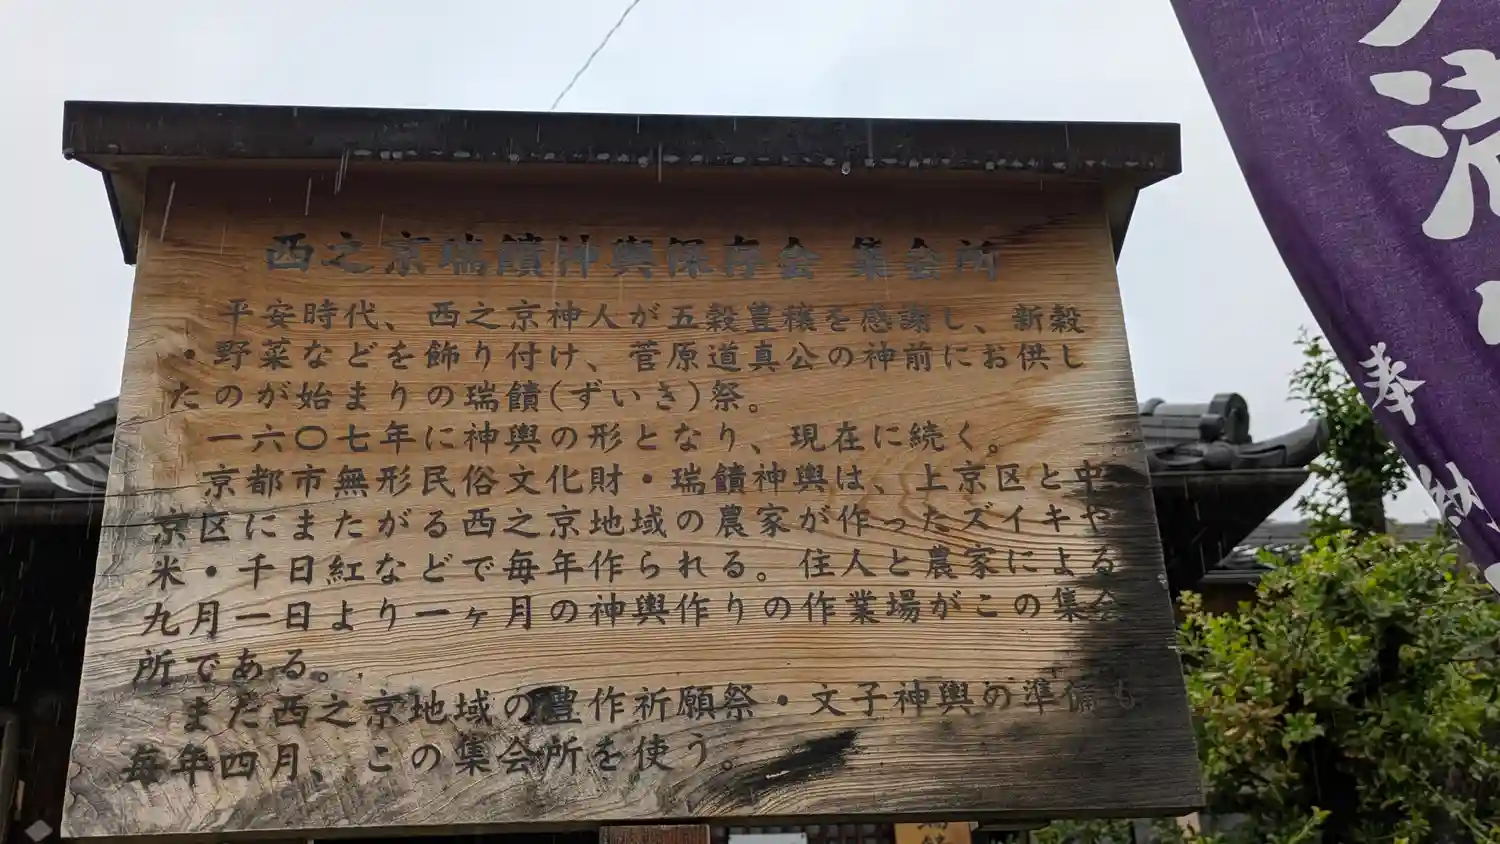 西之京瑞饋神輿保存会 集会所
平安時代、西之京神人が五穀豊穣を感謝し、新穀
・野菜などを飾り付け、菅原道真公の神前にお供し
たのが始まりの瑞饋(ずいき)祭。
一六〇七年に神輿の形となり、現在に続く。
京都市無形民俗文化財・瑞饋神輿は、上京区と中
京区にまたがる西之京地域の農家が作ったズイキや
米・千日紅などで毎年作られる。住人と農家による
九月一日より一ヶ月の神輿作りの作業場がこの集会
所である。
また西之京地域の豊作祈願祭・文子神輿の準備も
毎年四月、この集会所を使う。
奉納